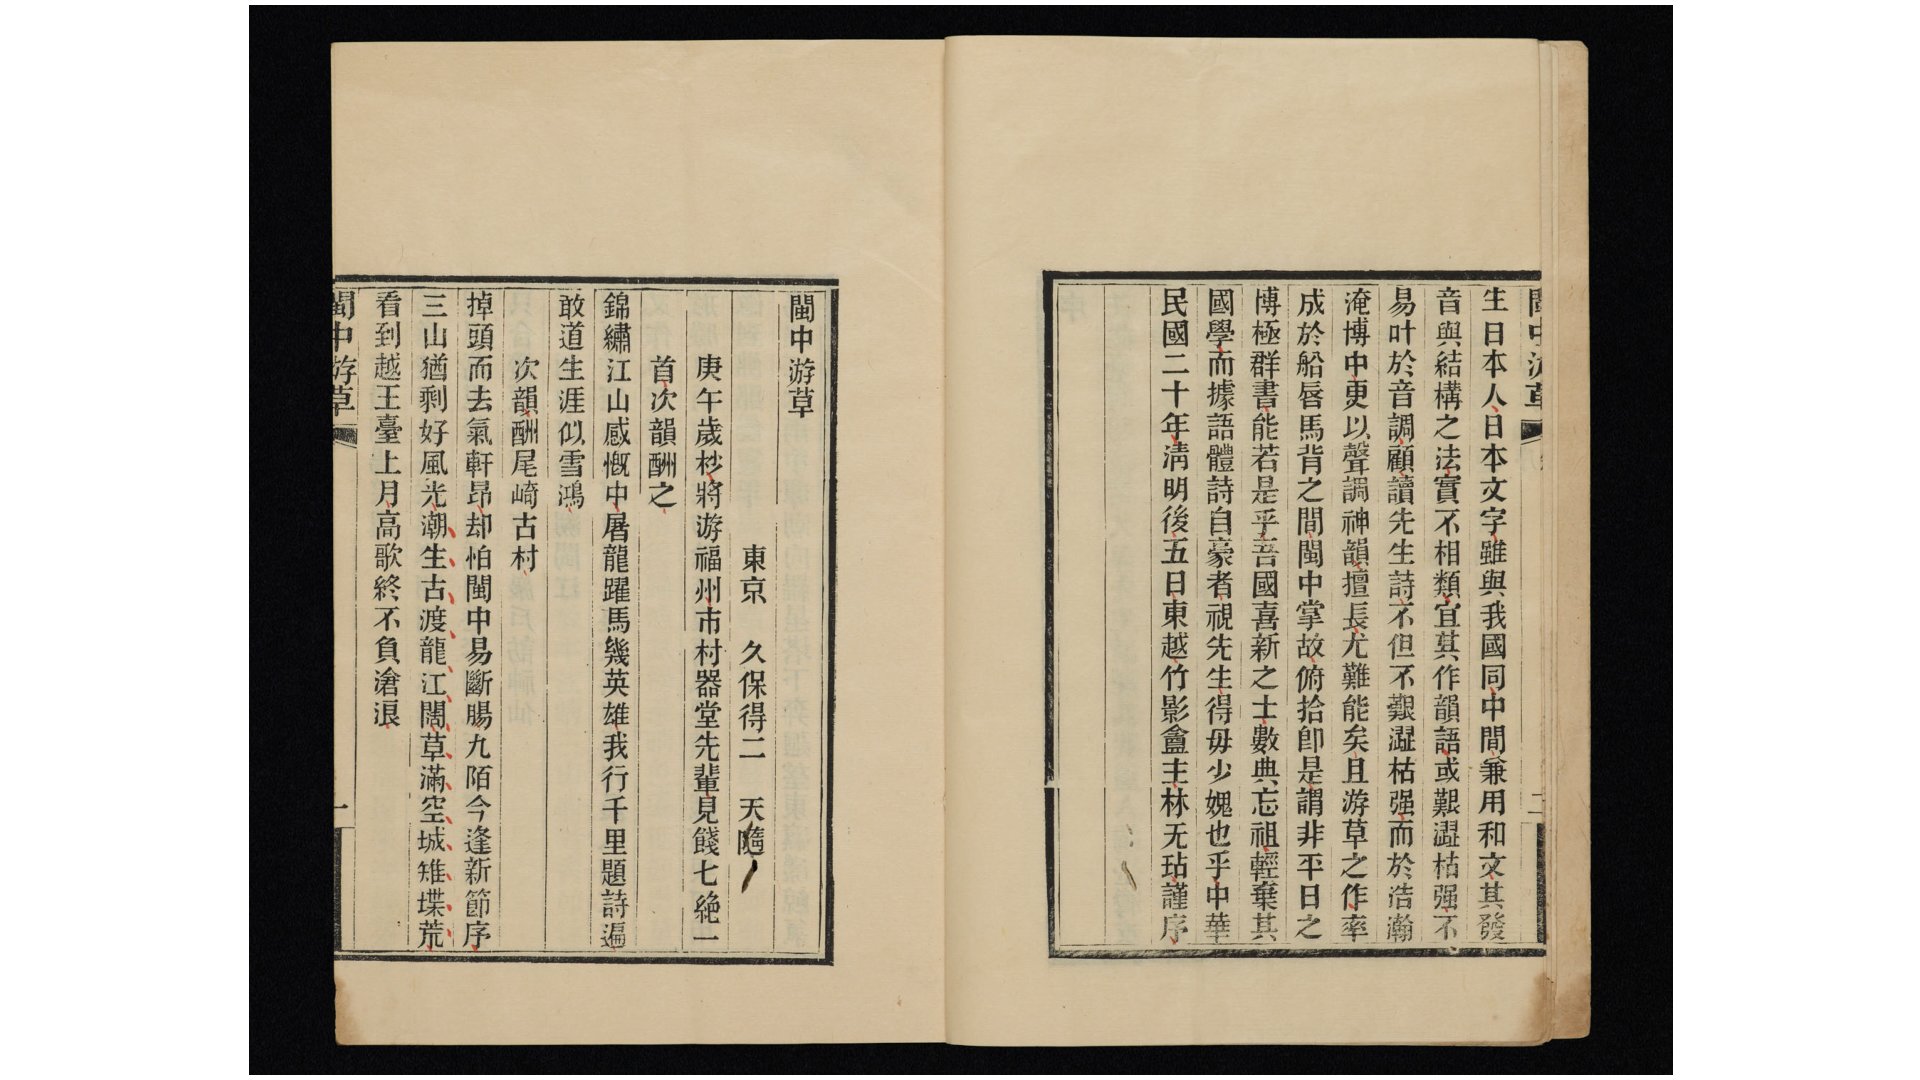 閩中游草
二
生日本人日本文字雖與我國同中間兼用和文其發
音與結構之法實不相類宜其作韻語或艱澀枯强不
易叶於音調顧讀先生詩不但不艱澀枯强而於浩瀚
淹博中更以聲調神韻擅長尤難能矣且游草之作率
成於船唇馬背之間閩中掌故俯拾卽是謂非平日之
博極群書能若是乎吾國喜新之士數典忘祖輕棄其
國學而據語體詩自豪者視先生得毋少媿也乎中華
民國二十年淸明後五日東越竹影盦主林无玷謹序
閩中游草
東京　久保得二　天隨
庚午歲杪將游福州市村器堂先輩見餞七絶一
首次韻酬之
錦繡江山感慨中屠龍躍馬幾英雄我行千里題詩遍
敢道生涯似雪鴻
次韻酬尾崎古村
掉頭而去氣軒昂却怕閩中易斷腸九陌今逢新節序
三山猶剩好風光潮生古渡龍江闊草滿空城雉堞荒
看到越王臺上月高歌終不負滄浪
閩中游草
一